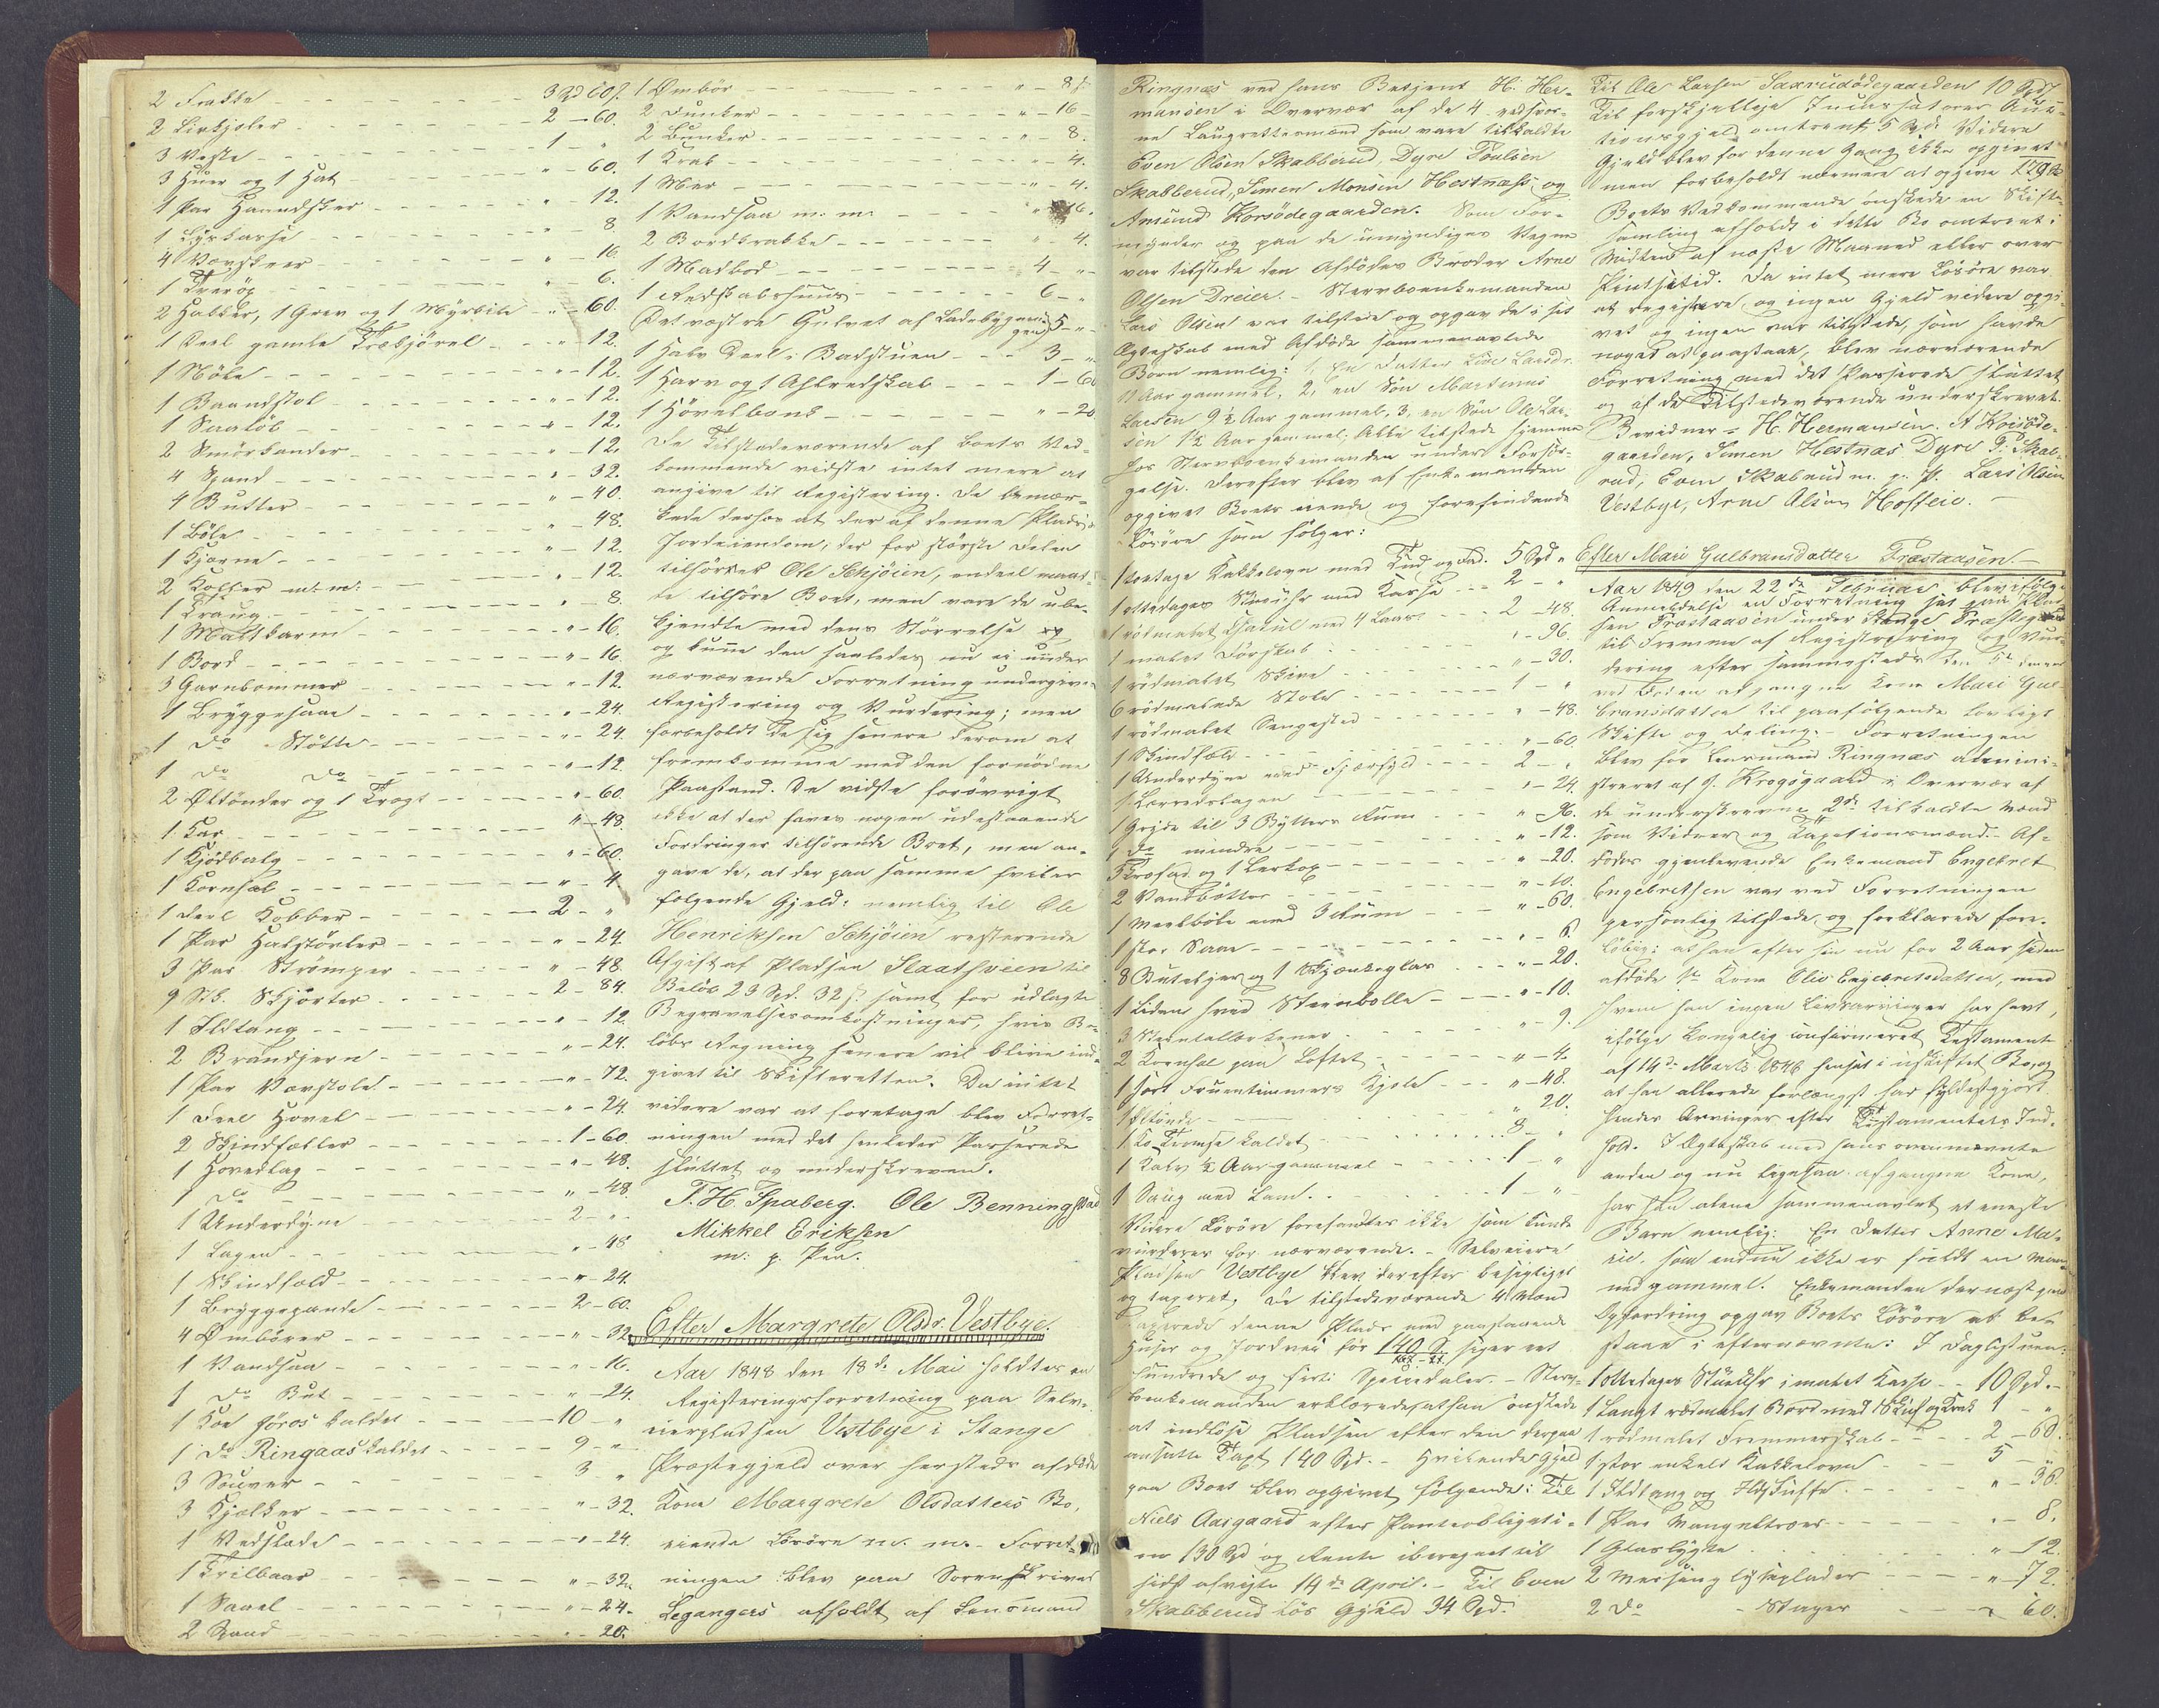 2 Frakke - - - 3 Spd 60 s.
2 Livkjoler - - - 2 - 60.
3 Veste - - - 1 - "
3 Huer og 1 Hat - - - " - 60.
1 Par Haandsker - - - " - 12.
1 - - - " - 8.
4 Vævskeer - - - " - 16.
1 - - - " 6.
2 Hakker, 1 Grev og 1 Myrbile " - 60.
1 Deel gamle Trækjørel - - " - 12.
1 - - - " - 12.
1 Baandstol - - - " - 12.
1 - - - " - 12.
2 Smörkander - - - " - 12.
4 Spand - - - " - 32.
4 Butter - - - " - 40.
1 Böle - - - " - 48.
1 Kjærne - - - " - 12.
2 m. m. - - - " - 12.
1 Traug - - - " 8.
1 Maltkarm - - - " - 16.
1 Bord - - - " - 16.
3 Garnbommer - - - " - 12.
1 Bryggesaae - - - " - 24.
1 do Støtte - - - " - 24.
1 do do - - - " - 12.
2 Øltønder og 1 Tragt - - - " - 60.
1 Kar - - - " - 48.
1 Kjödbalg - - - " - 60.
1 Kornsal - - - " - 4
1 Deel Kobber - - - 2 - "
1 Par Halstörkler - - - " - 24.
3 Par Strømper - - - " - 48.
9 Stk. Skjorter - - - 2 - 84.
1 Ildtang - - - " - 12.
2 Brandjern - - - " - 24.
1 Par Vævstole - - - " - 72.
1 Deel Hovel - - - " - 24.
2 Skindfælder - - - 1 - 60.
1 Hovedlag - - - " - 48.
1 do - - - " - 48.
1 Underdyne - - - 2 - "
1 Lagen - - - " - 48
1 Skindfæld - - - " - 24.
1 Bryggepande - - - 2 - 60.
4 Ømbörer - - - " - 32.
1 Vandsaa - - - " - 16.
1 do But - - - " - 24.
1 Koe kaldet - - - 10 - "
1 do Ringaas kaldet - - - 9 - "
3 Souver - - - 3 "
3 Kjælker - - - " - 32.
1 Vedslæde - - - " - 24.
1 Trilbaar - - - " - 32.
1 - - - " - 24.
2 Spand - - - " - 20.
1 Ømbör - - - " - 8 s.
2 Dunker - - - " - 16
2 Bunker - - - " - 8.
1 Krak - - - " - 4.
1 - - - " - 4.
1 Vandsaa m. m. - - - " 16.
2 Bordkrakke - - - " - 4.
1 Madbod - - - 4 - "
1 Redskabshuus - - - 6 - "
Det vestre Gulvet af Ladebygnin-
gen 5 - "
1 halv Deel i Badstuen - - - 3 - "
1 Harv og 1 - - - 1 - 60
1 Hövelbænk - - - " - 20
De Tilstedeværende af Boets Ved-
kommende vidste intet mere at
angive til Registering. De bemær-
kede derhos at der af denne Plads's
Jordeiendom, der for störste Delen
tilhörer Ole Schjöien, endeel maat-
te tilhöre Boet, men vare de ube-
kjendte med dens Størrelse og
og kunne den saaledes nu ei under
nærværende Forretning undergives
Registering og Vurdering; men
forbeholdt de sig senere derom at
fremkomme med den fornödne
Paastand. De vidste forövrigt
ikke at der haves nogen udestaaende
Fordringer tilhørende Boet, men an-
gave de, at der paa samme hviler
fölgende Gjeld: nemlig til Ole
Henriksen Schjöien resterende
Afgift af Pladsen Slaatsveen til
Beløb 23 Spd. 32 s. samt for udlagte
Begravelsesomkostninger, hvis Be-
löbs Regning senere vil blive ind-
givet til Skifteretten. Da intet
videre var at foretage blev Forret-
ningen med det saaledes Passerede
sluttet og underskreven.
T. H. Spaberg. Ole Benningstad
Mikkel Eriksen
m. p. Pen.
Efter Margrete Olsdr. Vestbye.
Aar 1848 den 18de Mai holdtes en
Registeringsforretning paa Selv-
eierpladsen Vestbye i Stange
Præstegjeld over hersteds afdøde
Kone Margrete Olsdatters Bo,
eiende Lösöre m. m. Forret-
ningen blev paa Sorenskriver
Legangers afholdt af Lensmand
Ringnæs ved hans Betjent H. Her-
mansen i Overvær af de 4 edsvor-
ne Laugrettesmænd som vare tilkaldte
Even Olsen Skabberud, Dyre Poulsen
Skabberud, Simen Monsen Hestnæss og
Amund Korsödegaarden. Som For-
mynder og paa de umyndiges Vegne
var tilstede den Afdødes Broder Arne
Olsen Dreier. - Stervboenkemanden
Lars Olsen var tilstede og opgav de i sit
Ægteskab med Afdöde sammenavlede
Börn nemlig: 1, en Datter Larsdr.
11 Aar gammel, 2, en Sön Martinus
Larsen 9½ Aar gammel, 3, en Sön Ole Lar-
sen 1½ Aar gammel, Alle tilstede hjemme
hos Stervboenkemanden under Forsör-
gelse. Derefter blev af Enkemanden
opgivet Boets eiende og forefindende
Lösöre som fölger:
1 toetages Kakkelovn med Tud og Fod. 5 Spd "
1 ottedages Stueuhr med Kasse - - 2 - "
1 rödmalet Chatul med 4 Laase - - 2 - 48.
1 malet Förskab - - - " - 96.
1 rödmalet Skive - - - " - 30.
6 rödmalede Stole - - - 1 - "
1 rödmalet Sengested - - - " - 48.
1 Skindfæld - - - " - 60.
1 Underdyne med Fjærfyld - - - 2 - "
1 Lærredslagen - - - " - 24.
1 Gryde til 3 Bötters Rum - - - " 96.
1 do mindre - - - " - 12.
og 1 Lerkop - - - " - 20.
2 Vandbötter - - - " - 10.
1 Meelböle med 3 Rum - - - " - 60.
1 stor Saae - - - " - 8.
8 Buteljer og 1 Skjænkeglas - - - " - 20.
1 Liden hvid Steenbolle - - - " - 10.
3 Steentallerkener - - - " - 9.
2 Kornsol paa Loftet - - - " - 4.
1 sort Fruentimmers Kjole - - - " - 48.
1 Øltönde - - - " 20.
1 Ko Kromse kaldet - - - 8 - "
1 Kalv ½ Aar gammel - - - 1 - "
1 Saug med Lam - - - 1 - "
Videre Lösöre forefandtes ikke som kunde
vurderes for nærværende. - Selveiere
Pladsen Vestbye blev derefter besigtiget
og taxeret. De tilstedeværende 4 Mænd
taxerede denne Plads med paastaaende
Huse og Jordvei for 140 Sp. siger eet
hundrede og firti Speciedaler. - Sterv-
boenkemanden erklærede at han önskede
at indlöse Pladsen efter den derpaa
ansatte Taxt 140 Spd. - Hvilende Gjeld
paa Boet blev opgivet fölgende: Til
Niels Aasgaard efter Panteobligati-
on 130 Spd og Rente iberegnet til
sidst afvigte 14de April. - Til Even
Skabberud lös Gjeld 34 Spd.
Til Ole Larsen Saxrudödegaarden 10 Spd.
Til forskjellige Incassatorer Auc-
tionsgjeld omtrent 5 Spd. Videre
Gjeld blev for denne Gang ikke opgivet
men forbeholdt nærmere at opgive
Boets Vedkommende önskede en Skifte-
samling afholdt i dette Bo omtrent i
Midten af næste Maaned eller over
Pintsetid. Da intet mere Lösöre var
at registere, og ingen Gjeld videre opgi-
vet og ingen var tilstede, som havde
noget at paastaae, blev nærværende
Forretning med det Passerede sluttet
og af de Tilstedeværende underskrevet.
Bevidner = H. Hermansen. A Korsöde-
gaarden, Simen Hestnæs Dyre P. Skab-
rud, Even Skabrud m. p. P. Lars Olsen
Vestbye, Arne Olsen Hosteie.
Efter Mari Gulbransdatter Træstaasen.
Aar 1849 den 22de Februar blev ifølge
Anmeldelse en Forretning sat paa Plad-
sen Træstaasen under Stange Præstegjeld
til Fremme af Registrering og Vur-
dering efter sammesteds den 5te dennes
ved Döden afgangne Kone Mari Gul-
bransdatter til paafølgende lovligt
Skifte og Deling. - Forretningen
blev for Lensmand Ringnæs admini-
streret af G. Krogsgaard i Overvær af
de underskrevne 2de tilkaldte Mænd
som Vidner og Taxationsmænd. Af-
dödes gjenlevende Enkemand Engebret
Engebretsen var ved Forretningen
personlig tilstede og forklarede fore-
löbig: at han efter sin nu for 2 Aar siden
afdöde 1te Kone Olivo Engebretsdatter, med
hvem han ingen Livsarvinger har havt,
ifölge Kongelig confirmeret Testamente
af 14de Marts 1846 hensat i uskiftet Bo, og
at han allerede forlængst har fyldestgjort
hendes Arvinger efter Testamentets Ind-
hold. I Ægteskab med hans ovennævnte
anden og nu ligesaa afgangne Kone,
har han alene sammenavlet et eneste
Barn nemlig: En Datter Anne Ma-
rie, som endnu ikke er fuldt en Maa-
ned gammel. Enkemanden dernæst paa
Opfordring opgav Boets Lösöre at be-
staae i efternævnte: I Dagligstuen:
1 ottedages Stueuhr i malet Kasse - - 10 Spd. -
1 Langt rødmalet Bord med Skuf og Krak 1 - "
1 rödmalet Fremmerskab - - - 2 - 60.
1 stor enkelt Kakkelovn - - - 5 - "
1 Ildtang og Ildskuffe - - - " - 36.
1 Par Mangeltræer - - - " - 8.
1 Glaslygte - - - " - 12.
2 Messing Lyseplader - - - " - 72.
2 do - Stager - - - " 60.